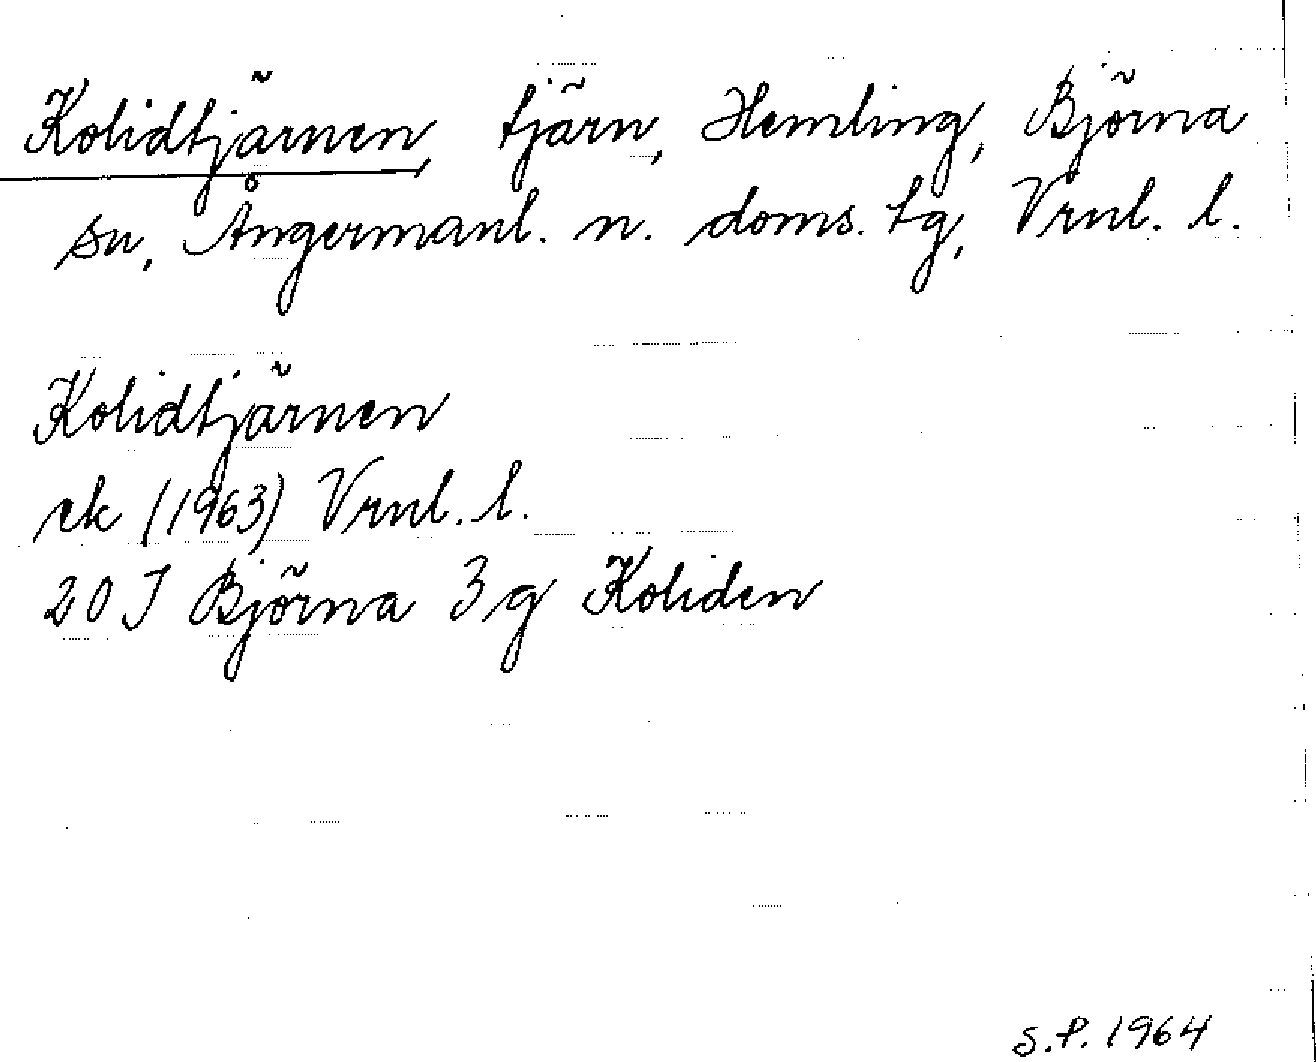 Kolidtjärnen, tjärn, Hemling, Björna
sn, Ångermanl. n. doms. tg, Vrnl. l.
Kolidtjärnen
ek (1963) Vrnl. l.
20 J Björna 3 g Koliden
S.P. 1964